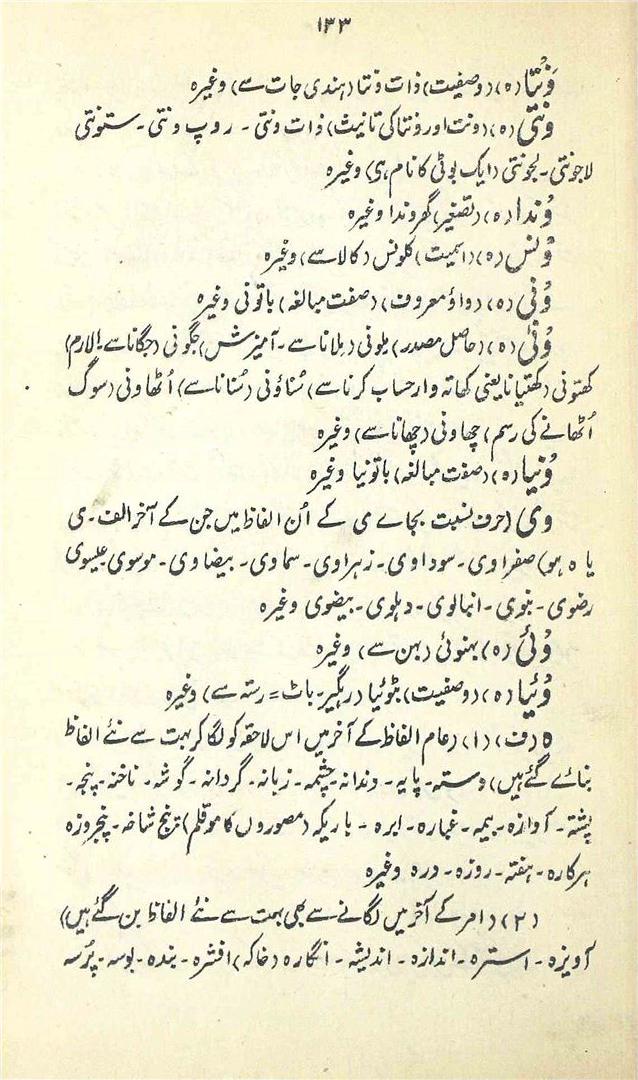 ۱۳۳
وَنْتا (ہ) (وصفیت) ذات ونتا (ہندی جات سے) وغیرہ
ونتی (ہ) (ونت اور ونتا کی تانیث) ذات ونتی ۔ روپ ونتی ۔ ستونتی
لاجونتی ۔ لجونتی (ایک بوٹی کا نام ہی) وغیرہ
وُندا (ہ) (تصغیر) گھروندا وغیرہ
وُنس (ہ) (اسمیت) کلونس (کالا سے) وغیرہ
وُنی (ہ) (واؤ معروف) (صفت مبالغہ) باتونی وغیرہ
وُنی (ہ) (حاصل مصدر) ملونی (ملانا سے ۔ آمیزش) جگونی (جگانا سے الارم)
کھتونی (کھتیانا یعنی کھاتہ وار حساب کرنا سے) سُناؤنی (سُنانا سے) اُٹھاونی (سوگ
اُٹھانے کی رسم) چھاونی (چھانا سے) وغیرہ
وُنیا (ہ) (صفت مبالغہ) باتونیا وغیرہ
وی (حرف نسبت بجاے ی کے اُن الفاظ میں جن کے آخر الف ۔ ی
یا ہ ہو) صفراوی ۔ سوداوی ۔ زہراوی ۔ سماوی ۔ بیضاوی ۔ موسوی عیسوی
رضوی ۔ بنوی ۔ انبالوی ۔ دہلوی ۔ بیضوی وغیرہ
وُئی (ہ) بہنوئی (بہن سے) وغیرہ
وُئیا (ہ) (وصفیت) بٹوئیا (رہگیر ۔ باٹ = رستہ سے) وغیرہ
ہ (ف) (۱) (عام الفاظ کے آخر میں اس لاحقہ کو لگا کر بہت سے نئے الفاظ
بنائے گئے ہیں) دستہ ۔ پایہ ۔ دندانہ ۔ چشمہ ۔ زبانہ ۔ گردانہ ۔ گوشہ ۔ ناخنہ ۔ پنجہ ۔
پشتہ ۔ آوازہ ۔ بیمہ ۔ غبارہ ۔ ابرہ ۔ باریکہ (مصوروں کا موقلم) ترنج شاخہ ۔ پنجروزہ
ہرکارہ ۔ ہفتہ ۔ روزہ ۔ درہ وغیرہ
(۲) (امر کے آخر میں لگانے سے بھی بہت سے نئے الفاظ بن گئے ہیں)
آویزہ ۔ استرہ ۔ اندازہ ۔ اندیشہ ۔ انگارہ (خاکہ) افشرہ ۔ بندہ ۔ بوسہ ۔ پُرسہ